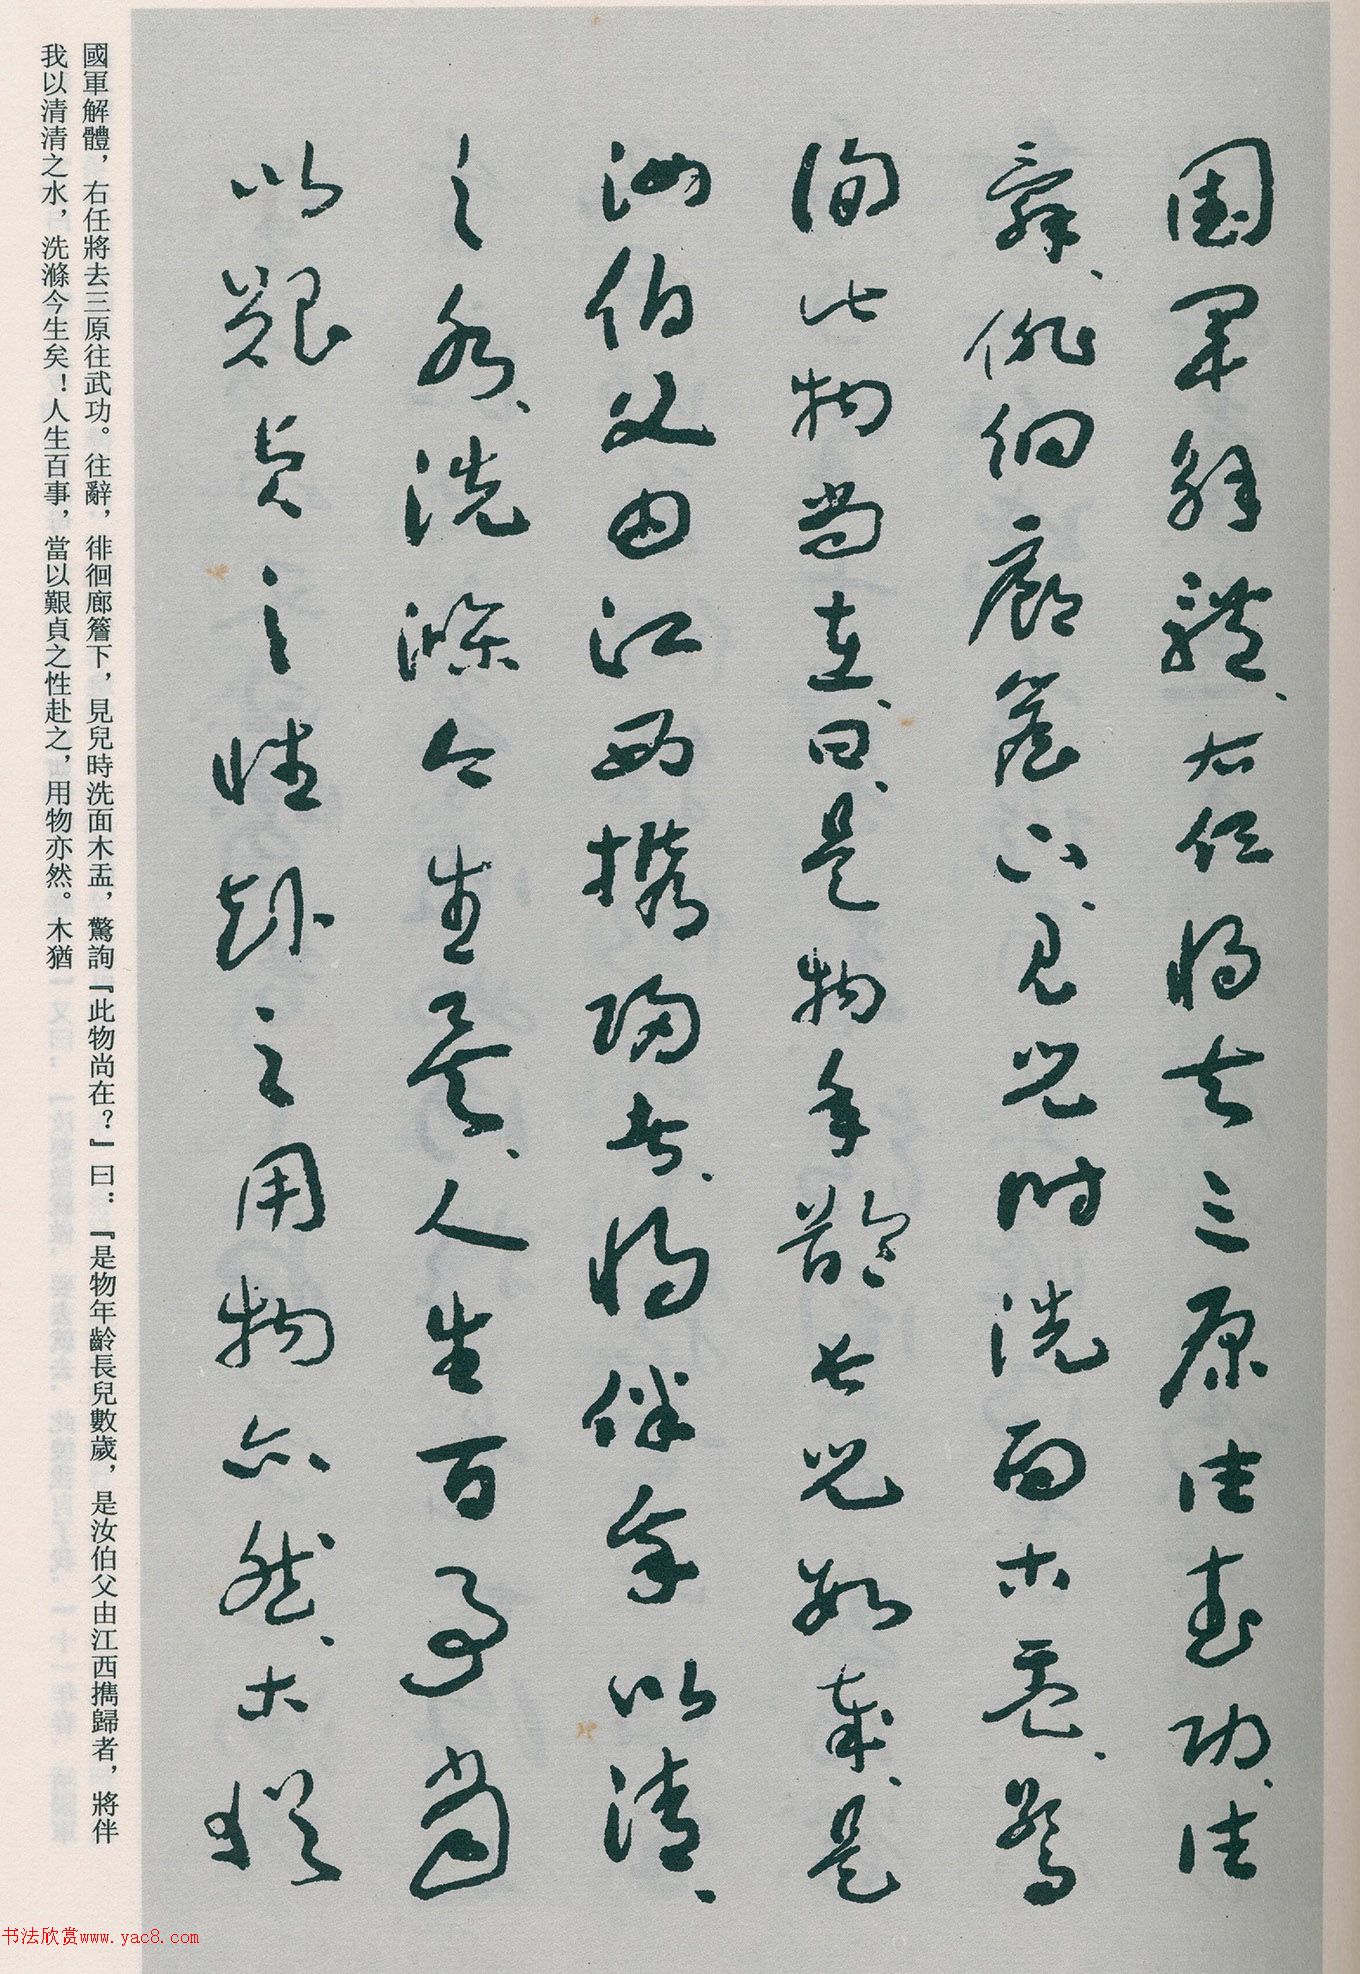 國軍解體、右任將去三原往武功、往
辭、徘徊廊簷下、見兒時洗面木盂、驚
詢此物尚在、曰、是物年齡長兒數歲、是
汝伯父由江西攜歸者、將伴我以清、
之水、洗滌今生矣、人生百事當
以艱貞之性赴之用物亦然、木猶
國軍解體，右任將去三原往武功。往辭，徘徊廊簷下，見兒時洗面木盂，驚詢『此物尚在？』曰：『是物年齡長兒數歲，是汝伯父由江西攜歸者，將伴
我以清清之水，洗滌今生矣！人生百事，當以艱貞之性赴之，用物亦然。木猶
书法欣赏www.yac8.com